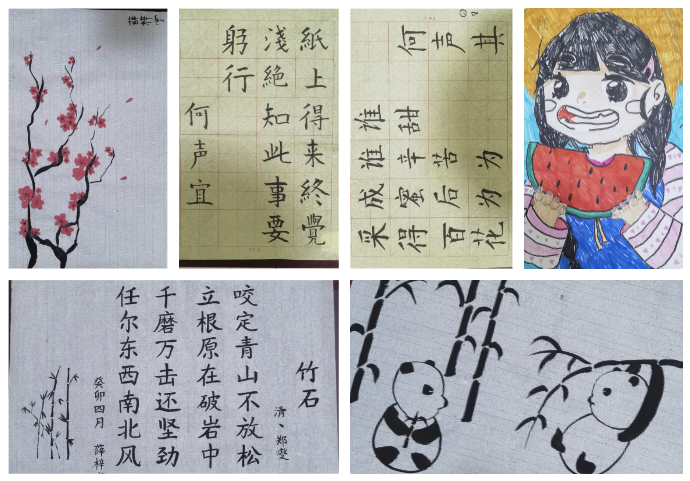 紙上得来終覺
淺絕知此事要
躬行
何声宜
采得百花
成蜜后为
谁辛苦为
谁甜
何声其
竹石
清、郑燮
咬定青山不放松
立根原在破岩中
千磨万击还坚劲
任尔东西南北风
癸卯四月 薛梓